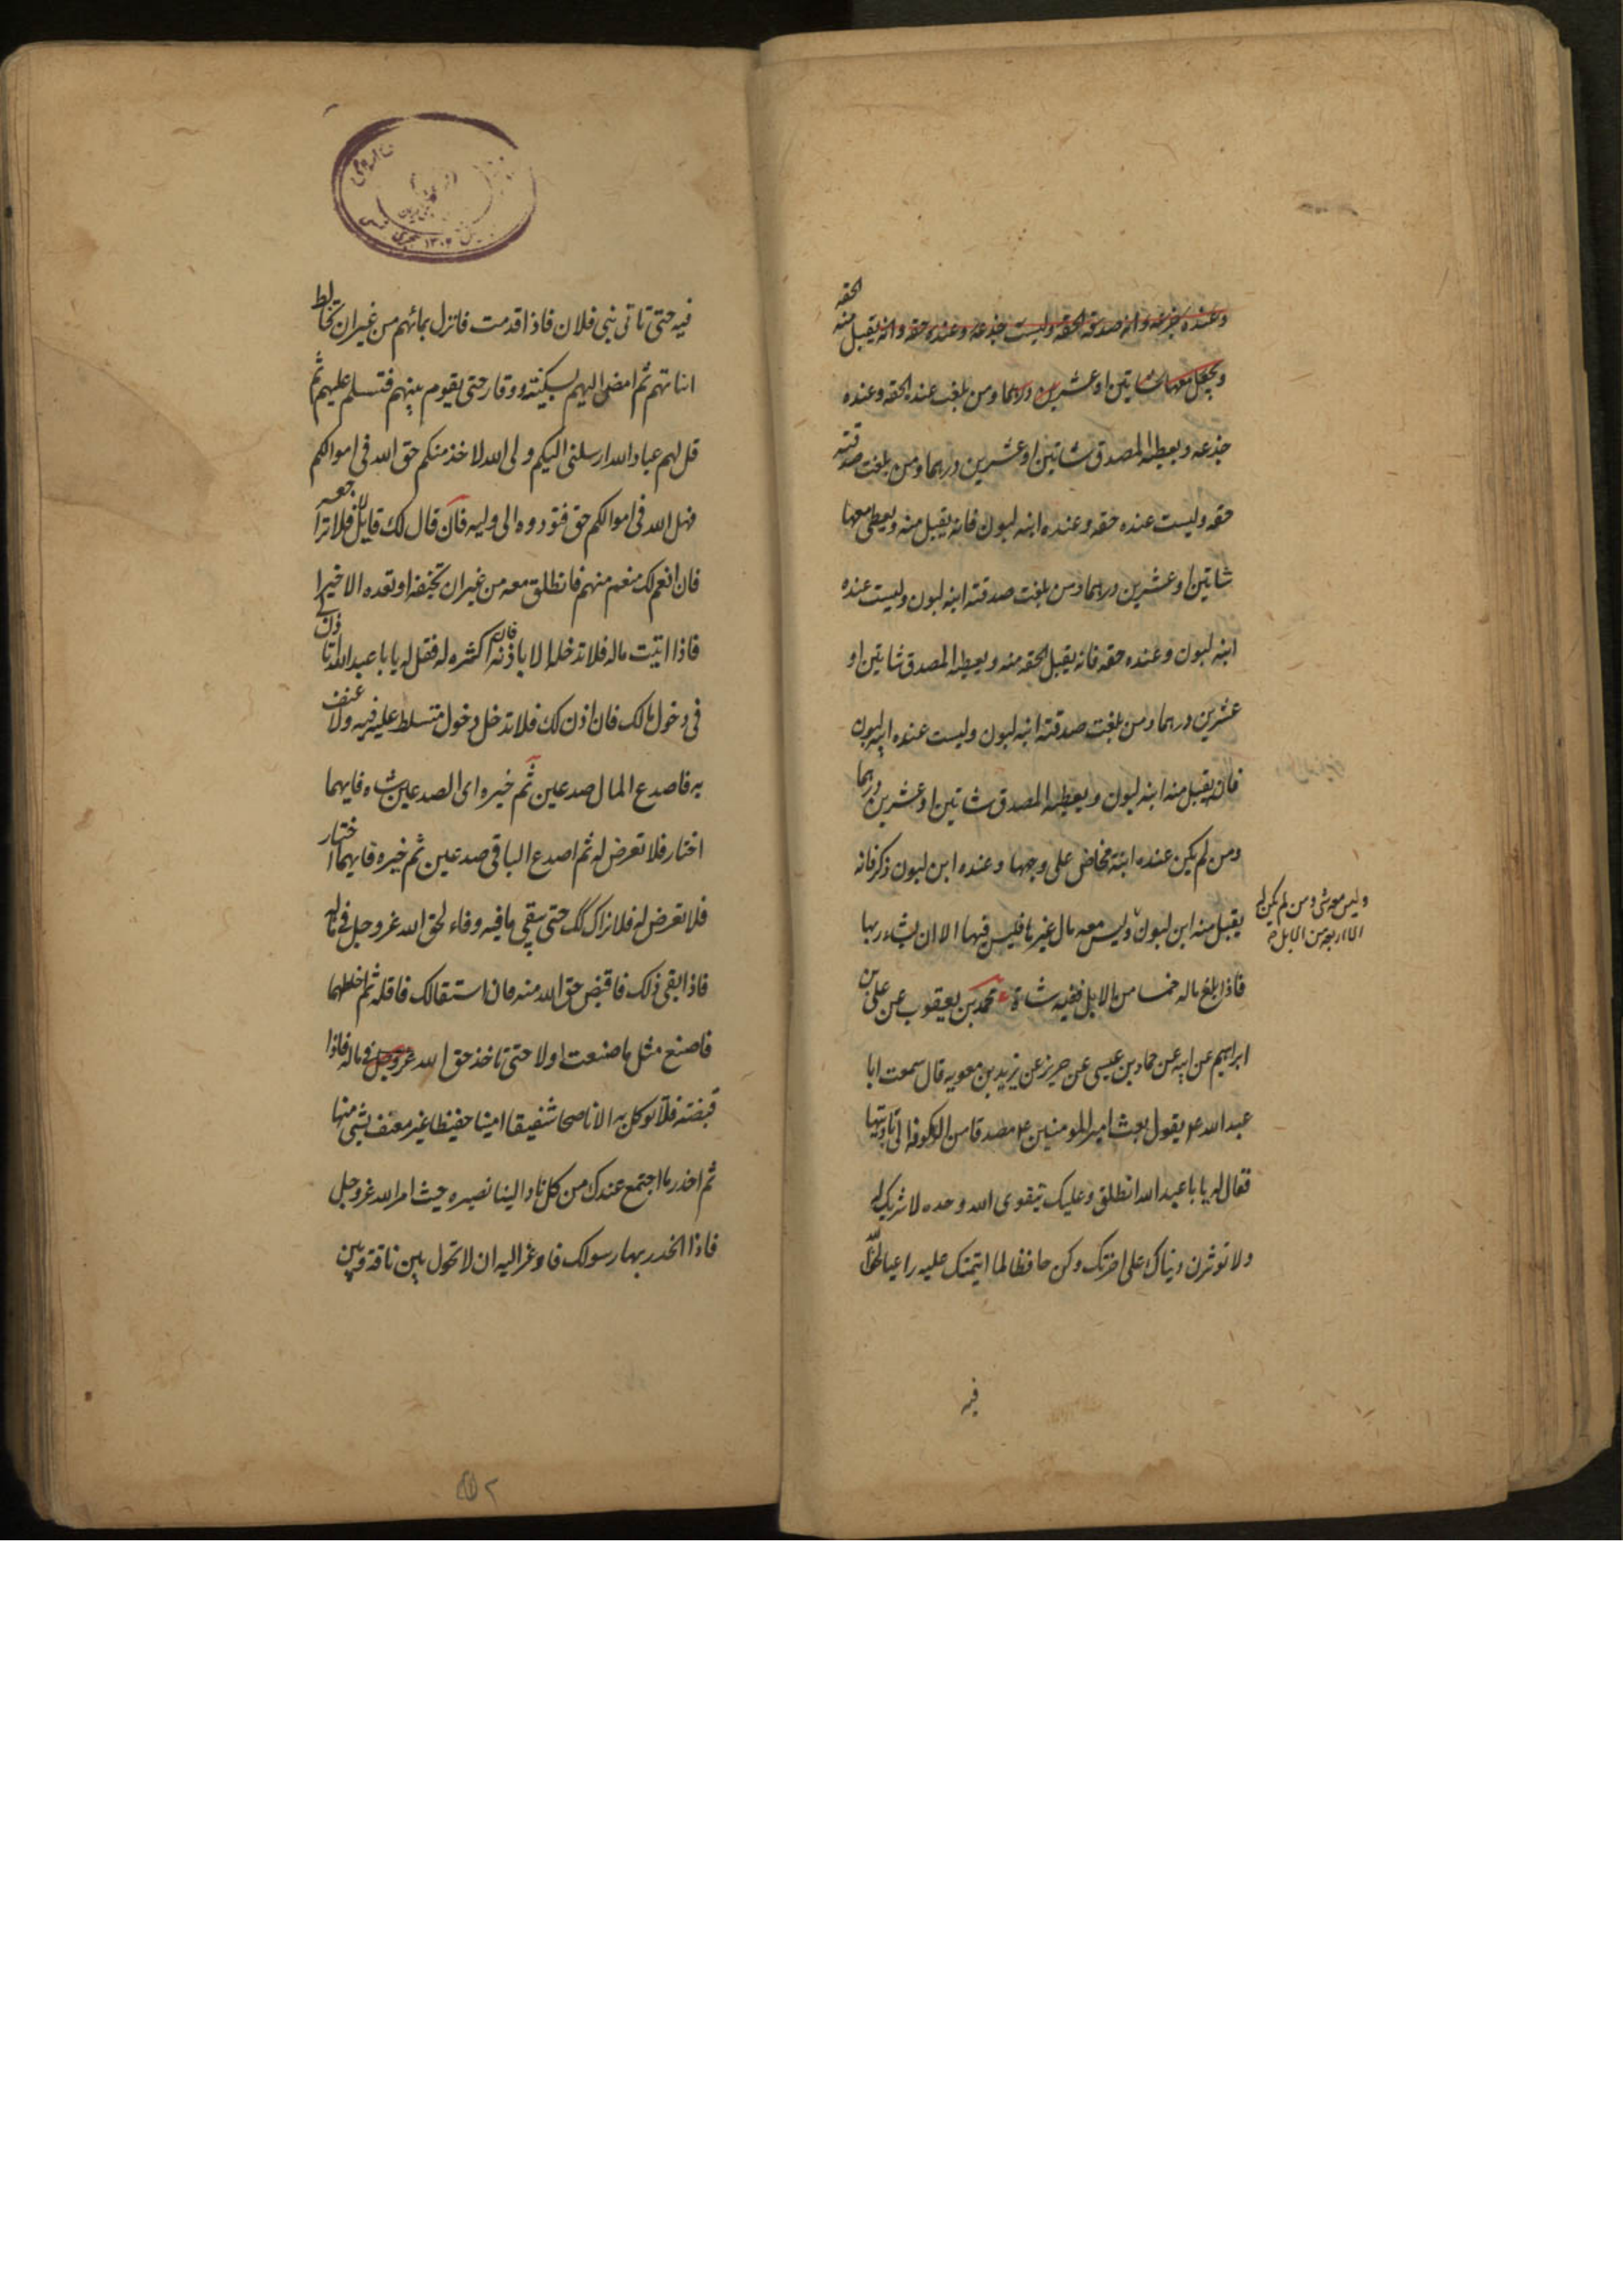 وعنده جزعه وانه صدقه الحقه وليست جذعه وعنده حقه وانه يقبل منه الحقه
ويجعل معها شاتين او عشرين درهما ومن بلغت عنده الحقه وعنده
جذعه ويعطيه المصدق شاتين او عشرين درهما ومن بلغت صدقته
حقه وليست عنده حقه وعنده ابنه لبون فانه يقبل منه ويعطى معها
شاتين او عشرين درهما ومن بلغت صدقته ابنه لبون وليست عنده
ابنه لبون وعنده حقه فانه يقبل الحقه منه ويعطيه المصدق شاتين او
عشرين درهما ومن بلغت صدقته ابنه لبون وليست عنده ابنه لبون
فانه يقبل منه ابنه لبون ويعطيه المصدق شاتين او عشرين درهما
ومن لم يكن عنده ابنة مخاض على وجهها وعنده ابن لبون ذكر فانه
يقبل منه ابن لبون وليس معه مال غيرها فليس فيها الا ان يشاء ربها
وليس معه شى ومن لم يكن له
الا اربعه من الابل
فاذا بلغ ماله خمسا من الابل ففيه شاة محمد بن يعقوب عن على بن
ابراهيم عن ابيه عن حماد بن عيسى عن حريز عن يزيد بن معويه قال سمعت ابا
عبد الله ع يقول بعث امير المومنين ع مصدقا من الكوفه الى باديتها
فقال له يا با عبد الله انطلق وعليك بتقوى الله وحده لا شريك له
ولا توثرن دنياك على اخرتك وكن حافظا لما ايتمنتك عليه راعيا لحق الله
فيه
فيه حتى تاتى بنى فلان فاذا قدمت فانزل بمائهم من غير ان تخالط
انياتهم ثم امض اليهم بسكينته ووقار حتى يقوم بينهم فتسلم عليهم ثم
قل لهم عباد الله ارسلنى اليكم ولى الله لاخذ منكم حق الله فى اموالكم
فهل الله فى اموالكم حق فتودوه الى وليه فان قال لك قايل لا فلا تراجعه
فان انعم لك منعم منهم فانطلق معه من غير ان تخيفه او تعده الا خيرا
فاذا اتيت ماله فلا تدخله الا باذنه فان اكثره له فقل له يا با عبد الله اتاذن لى
فى دخول مالك فان اذن لك فلا تدخل دخول متسلط عليه فيه ولا عنف
به فاصدع المال صدعين ثم خيره اى الصدعين شاء فايهما
اختار فلا تعرض له ثم اصدع الباقى صدعين ثم خيره فايهما اختار
فلا تعرض له فلا تزال كك حتى يبقى ما فيه وفاء لحق الله عز وجل فى ماله
فاذا بقى ذلك فاقبض حق الله منه فان استقالك فاقله ثم اخلطهما
فاصنع مثل ما صنعت اولا حتى تاخذ حق الله عز وجل فى ماله فاذا
قبضته فلا توكل به الا ناصحا شفيقا امينا حفيظا غير معنف بشى منها
ثم احدر ما اجتمع عندك من كل ناد الينا نصيره حيث امر الله عز وجل
فاذا انحدر بها رسولك فاوعز اليه ان لا تحول بين ناقة وبين